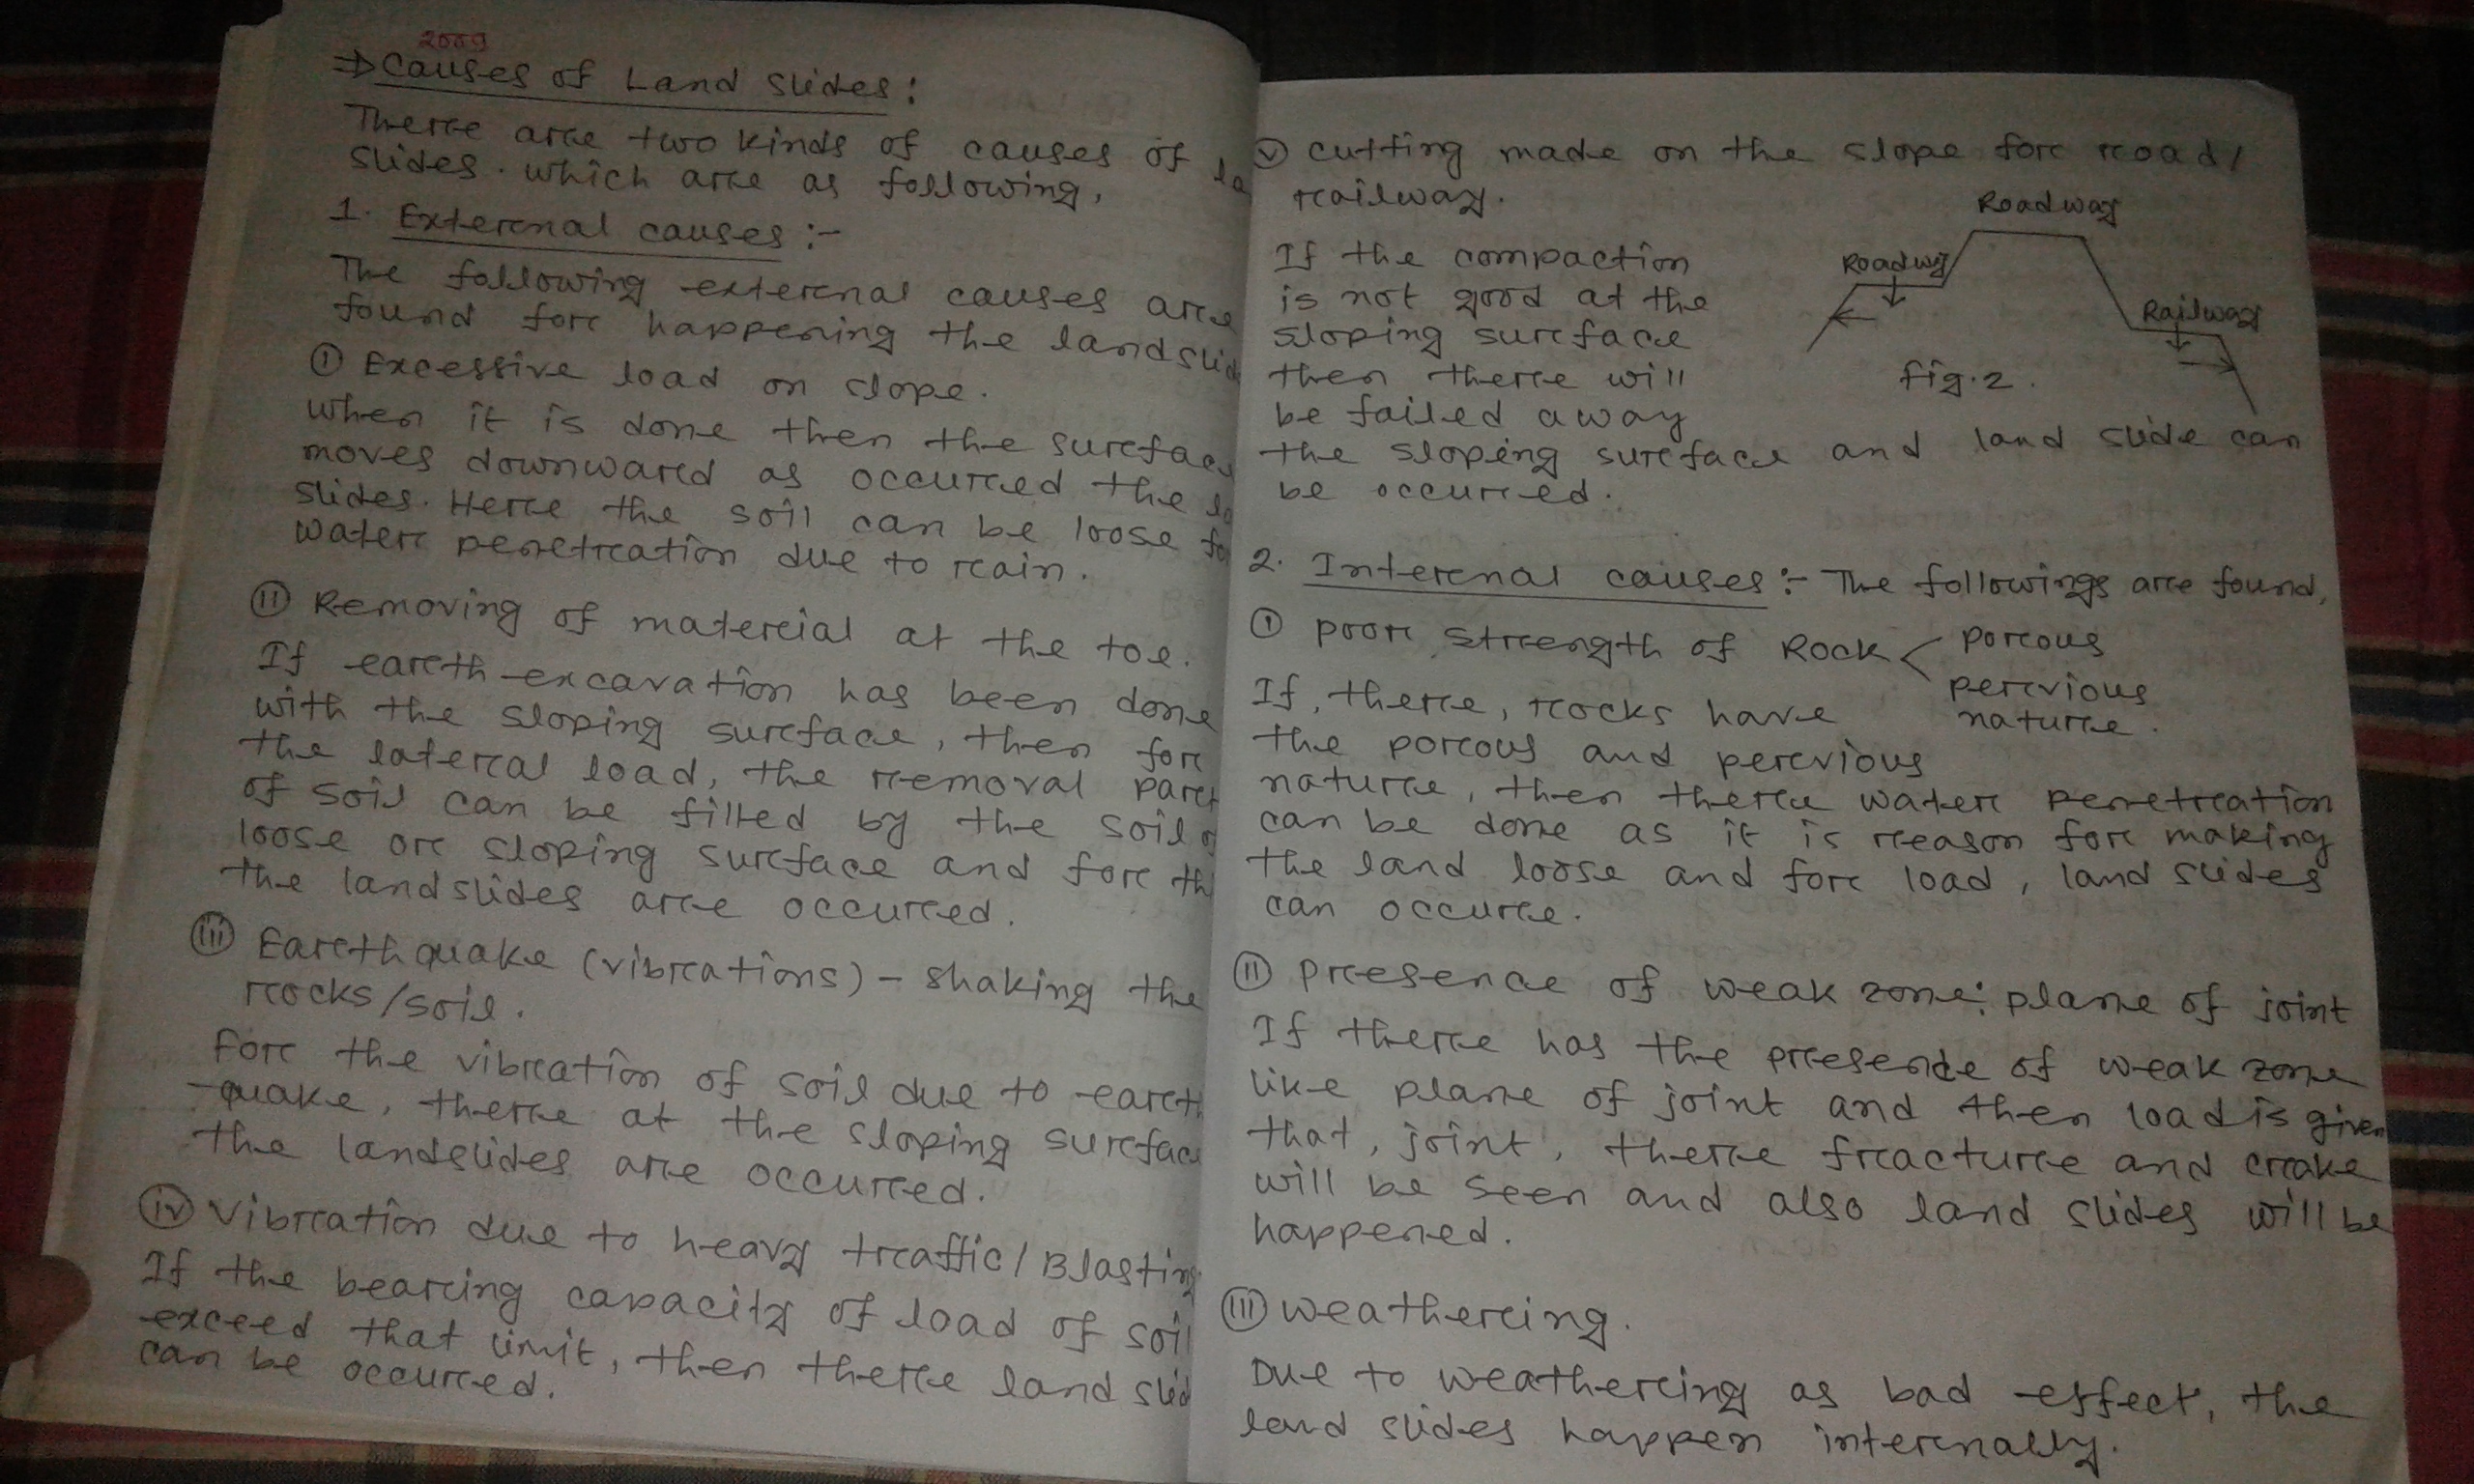 2009
⇒ Causes of Land Slides:
There are two kinds of causes of la
slides. which are as following,
1. External causes :-
The following external causes are
found for happening the landslid
(i) Excessive load on slope.
When it is done then the surfac
moves downward as occured the la
slides. Here the soil can be loose fo
water penetration due to rain.
(ii) Removing of material at the toe.
If earth excavation has been done
with the sloping surface, then for
the lateral load, the removal part
of soil can be filled by the soil o
loose or sloping surface and for th
the landslides are occured.
(iii) Earthquake (vibrations) - shaking the
rocks/soil.
For the vibration of soil due to earth
-quake, there at the sloping surfac
the landslides are occured.
(iv) Vibration due to heavy traffic/Blasting
If the bearing capacity of load of soil
exceed that limit, then there land slid
can be occured.
(v) cutting made on the slope for road/
railway.
If the compaction
is not good at the
sloping surface
then there will
be failed away
the sloping surface and land slide can
be occured.
Roadway
Roadwy
Railway
fig.2.
2. Internal causes :- The followings are found,
(i) Poor strength of Rock < porous
pervious
nature.
If, there, rocks have
the porous and pervious
nature, then there water penetration
can be done as it is reason for making
the land loose and for load, land slides
can occure.
(ii) Presence of weak zone: plane of joint
If there has the presende of weak zone
like plane of joint and then load is given
that, joint, there fracture and crake
will be seen and also land slides will be
happened.
(iii) Weathering.
Due to weathering as bad effect, the
land slides happen internally.